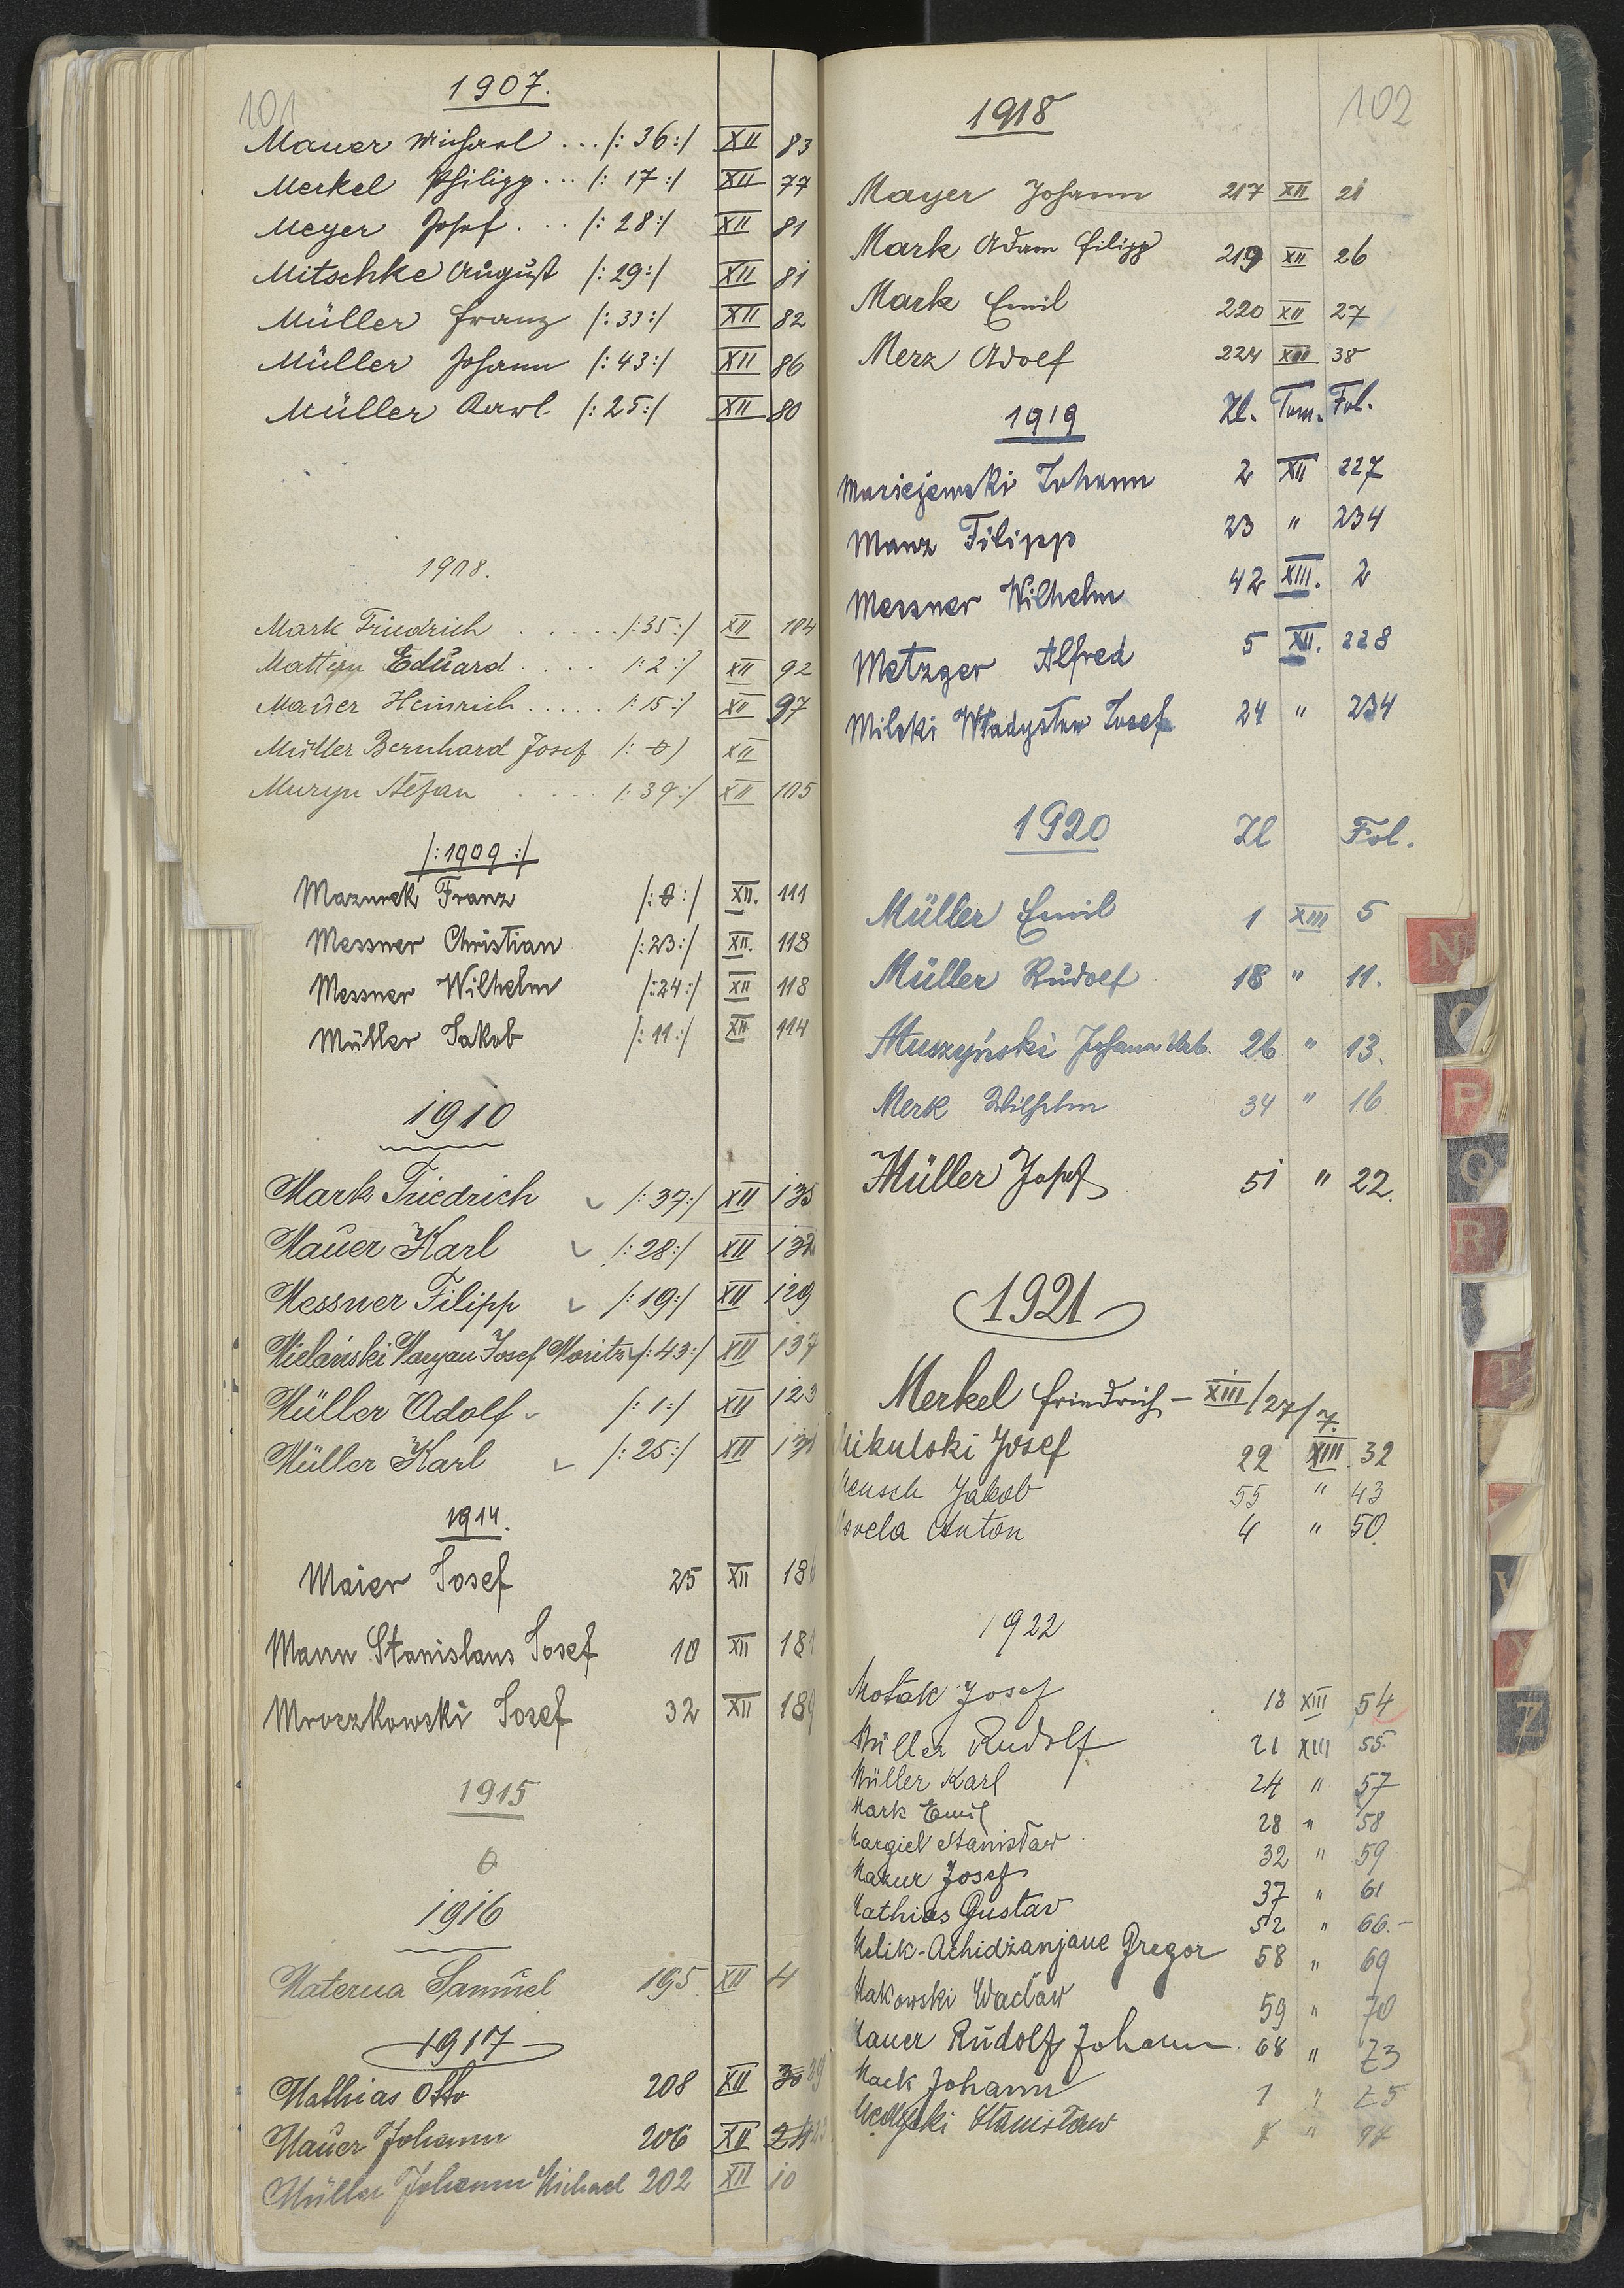 101
1907.
Mauer Michael ... /: 36 :/ XII 83
Merkel Philipp ... /: 17 :/ XII 77
Meyer Josef ... /: 28 :/ XII 81
Mitschke August /: 29 :/ XII 81
Müller Franz /: 33 :/ XII 82
Müller Johann /: 43 :/ XII 86
Müller Karl /: 25 :/ XII 80
1908.
Mark Friedrich ..... /: 35 :/ XII 104
Mattern Eduard .... /: 2 :/ XII 92
Mauer Heinrich ..... /: 15 :/ XII 97
Müller Bernhard Josef /: 0 / XII
Muryn Stefan .... /: 39 :/ XII 105
/: 1909 :/
Mazurek Franz /: 0 :/ XII. 111
Messner Christian /: 23 :/ XII. 118
Messner Wilhelm /: 24 :/ XII 118
Müller Jakob /: 11 :/ XII 114
1910
Mark Friedrich /: 37 :/ XII 135
Mauer Karl /: 28 :/ XII 132
Messner Filipp /: 19 :/ XII 129
Mielański Maryan Josef Moritz /: 43 :/ XII 137
Müller Adolf /: 1 :/ XII 123
Müller Karl /: 25 :/ XII
1914.
Maier Josef 25 XII
Mann Stanislaus Josef 10 XII
Mroczkowski Josef 32 XII 189
1915
0
1916
Materna Samuel 195 XII 4
1917
Mathias Otto 208 XII
Mauer Johann 206 XII
Müller Johann Michael 202 XII 10
102
1918
Mayer Johann 217 XII 21
Mark Adam Filipp 219 XII 26
Mark Emil 220 XII 27
Merz Adolf 224 XII 38
1919 Zl. Tom. Fol.
Maciejewski Johann 2 XII 227
Manz Filipp 23 " 234
Messner Wilhelm 42 XIII. 2
Metzger Alfred 5 XII. 228
Milski Władysław Josef 24 " 234
1920 Zl Fol.
Müller Emil 1 XIII 5
Müller Rudolf 18 " 11.
Muszyński Johann Urb. 26 " 13.
Merk Wilhelm 34 " 16
Müller Josef 51 " 22.
1921
Merkel Friedrich - XIII/27/7.
Mikulski Josef 22 XIII. 32
Mensch Jakob 55 " 43
Anton 4 " 50.
1922
Motak Josef 18 XIII 54
Müller Rudolf 21 XIII 55.
Müller Karl 24 " 57
Mark Emil 28 " 58
Margiel Stanisław 32 " 59
Mazur Josef 37 " 61
Mathias Gustav 52 " 66.-
Melik-Achidżanjane Gregor 58 " 69
Makowski Wacław 59 " 70
Mauer Rudolf Johann 68 " 73
Mack Johann 1 " 75
Stanisław " 94
N
P
Q
R
T
Z